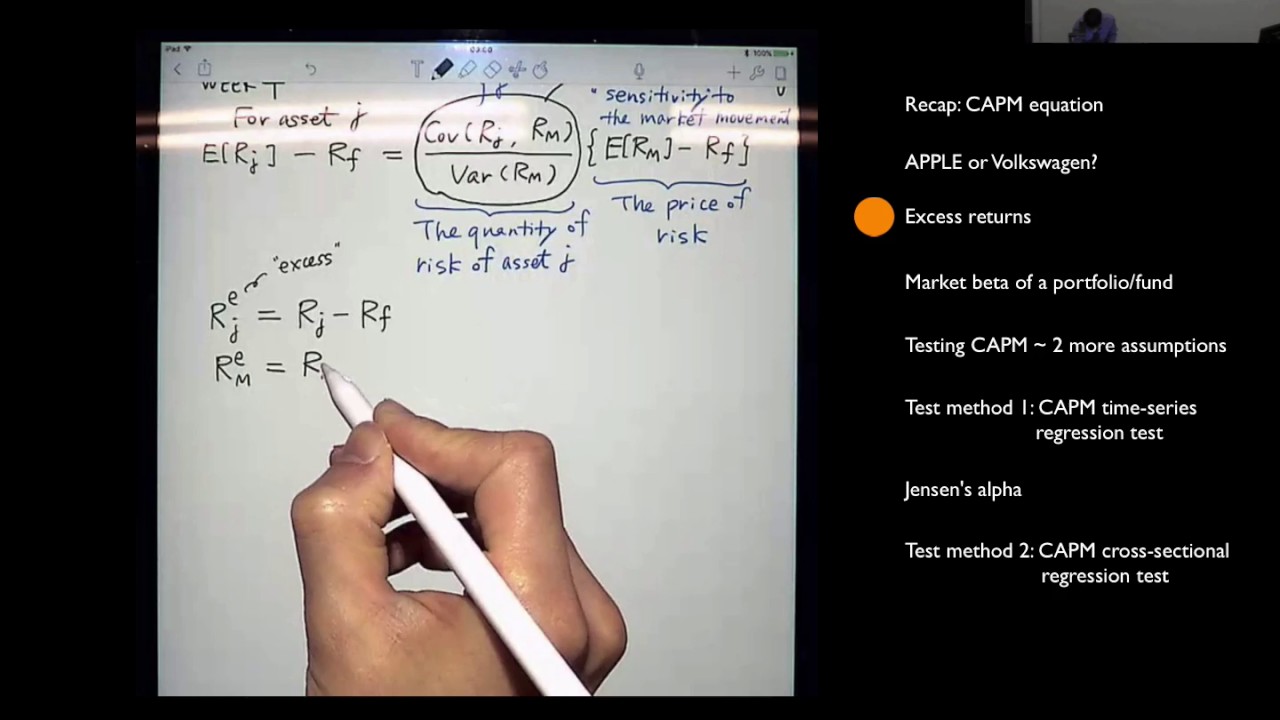 iPad
100%
T
WEEK T
For asset j
"sensitivity to
the market movement
E[Rj] - Rf = Cov(Rj, RM) / Var(RM) { E[RM] - Rf }
The quantity of
risk of asset j
The price of
risk
"excess"
R^e_j = Rj - Rf
R^e_M = R
Recap: CAPM equation
APPLE or Volkswagen?
Excess returns
Market beta of a portfolio/fund
Testing CAPM ~ 2 more assumptions
Test method 1: CAPM time-series
regression test
Jensen's alpha
Test method 2: CAPM cross-sectional
regression test